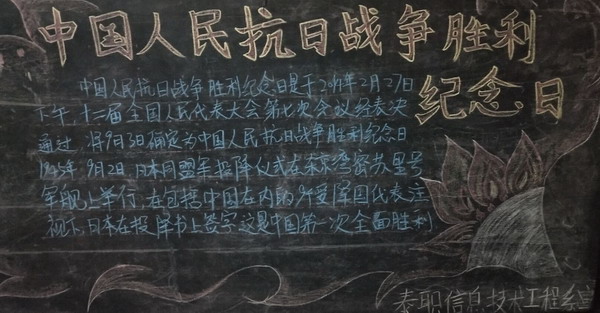 中国人民抗日战争胜利
纪念日
中国人民抗日战争胜利纪念日是于2014年2月27日
下午,十二届全国人民代表大会第七次会议经表决
通过,将9月3日确定为中国人民抗日战争胜利纪念日
1945年,9月2日,日本同盟军投降仪式在东京湾密苏里号
军舰上举行,在包括中国在内的9个受降国代表注
视下,日本在投降书上签字这是中国第一次全面胜利
泰职信息技术工程系宣